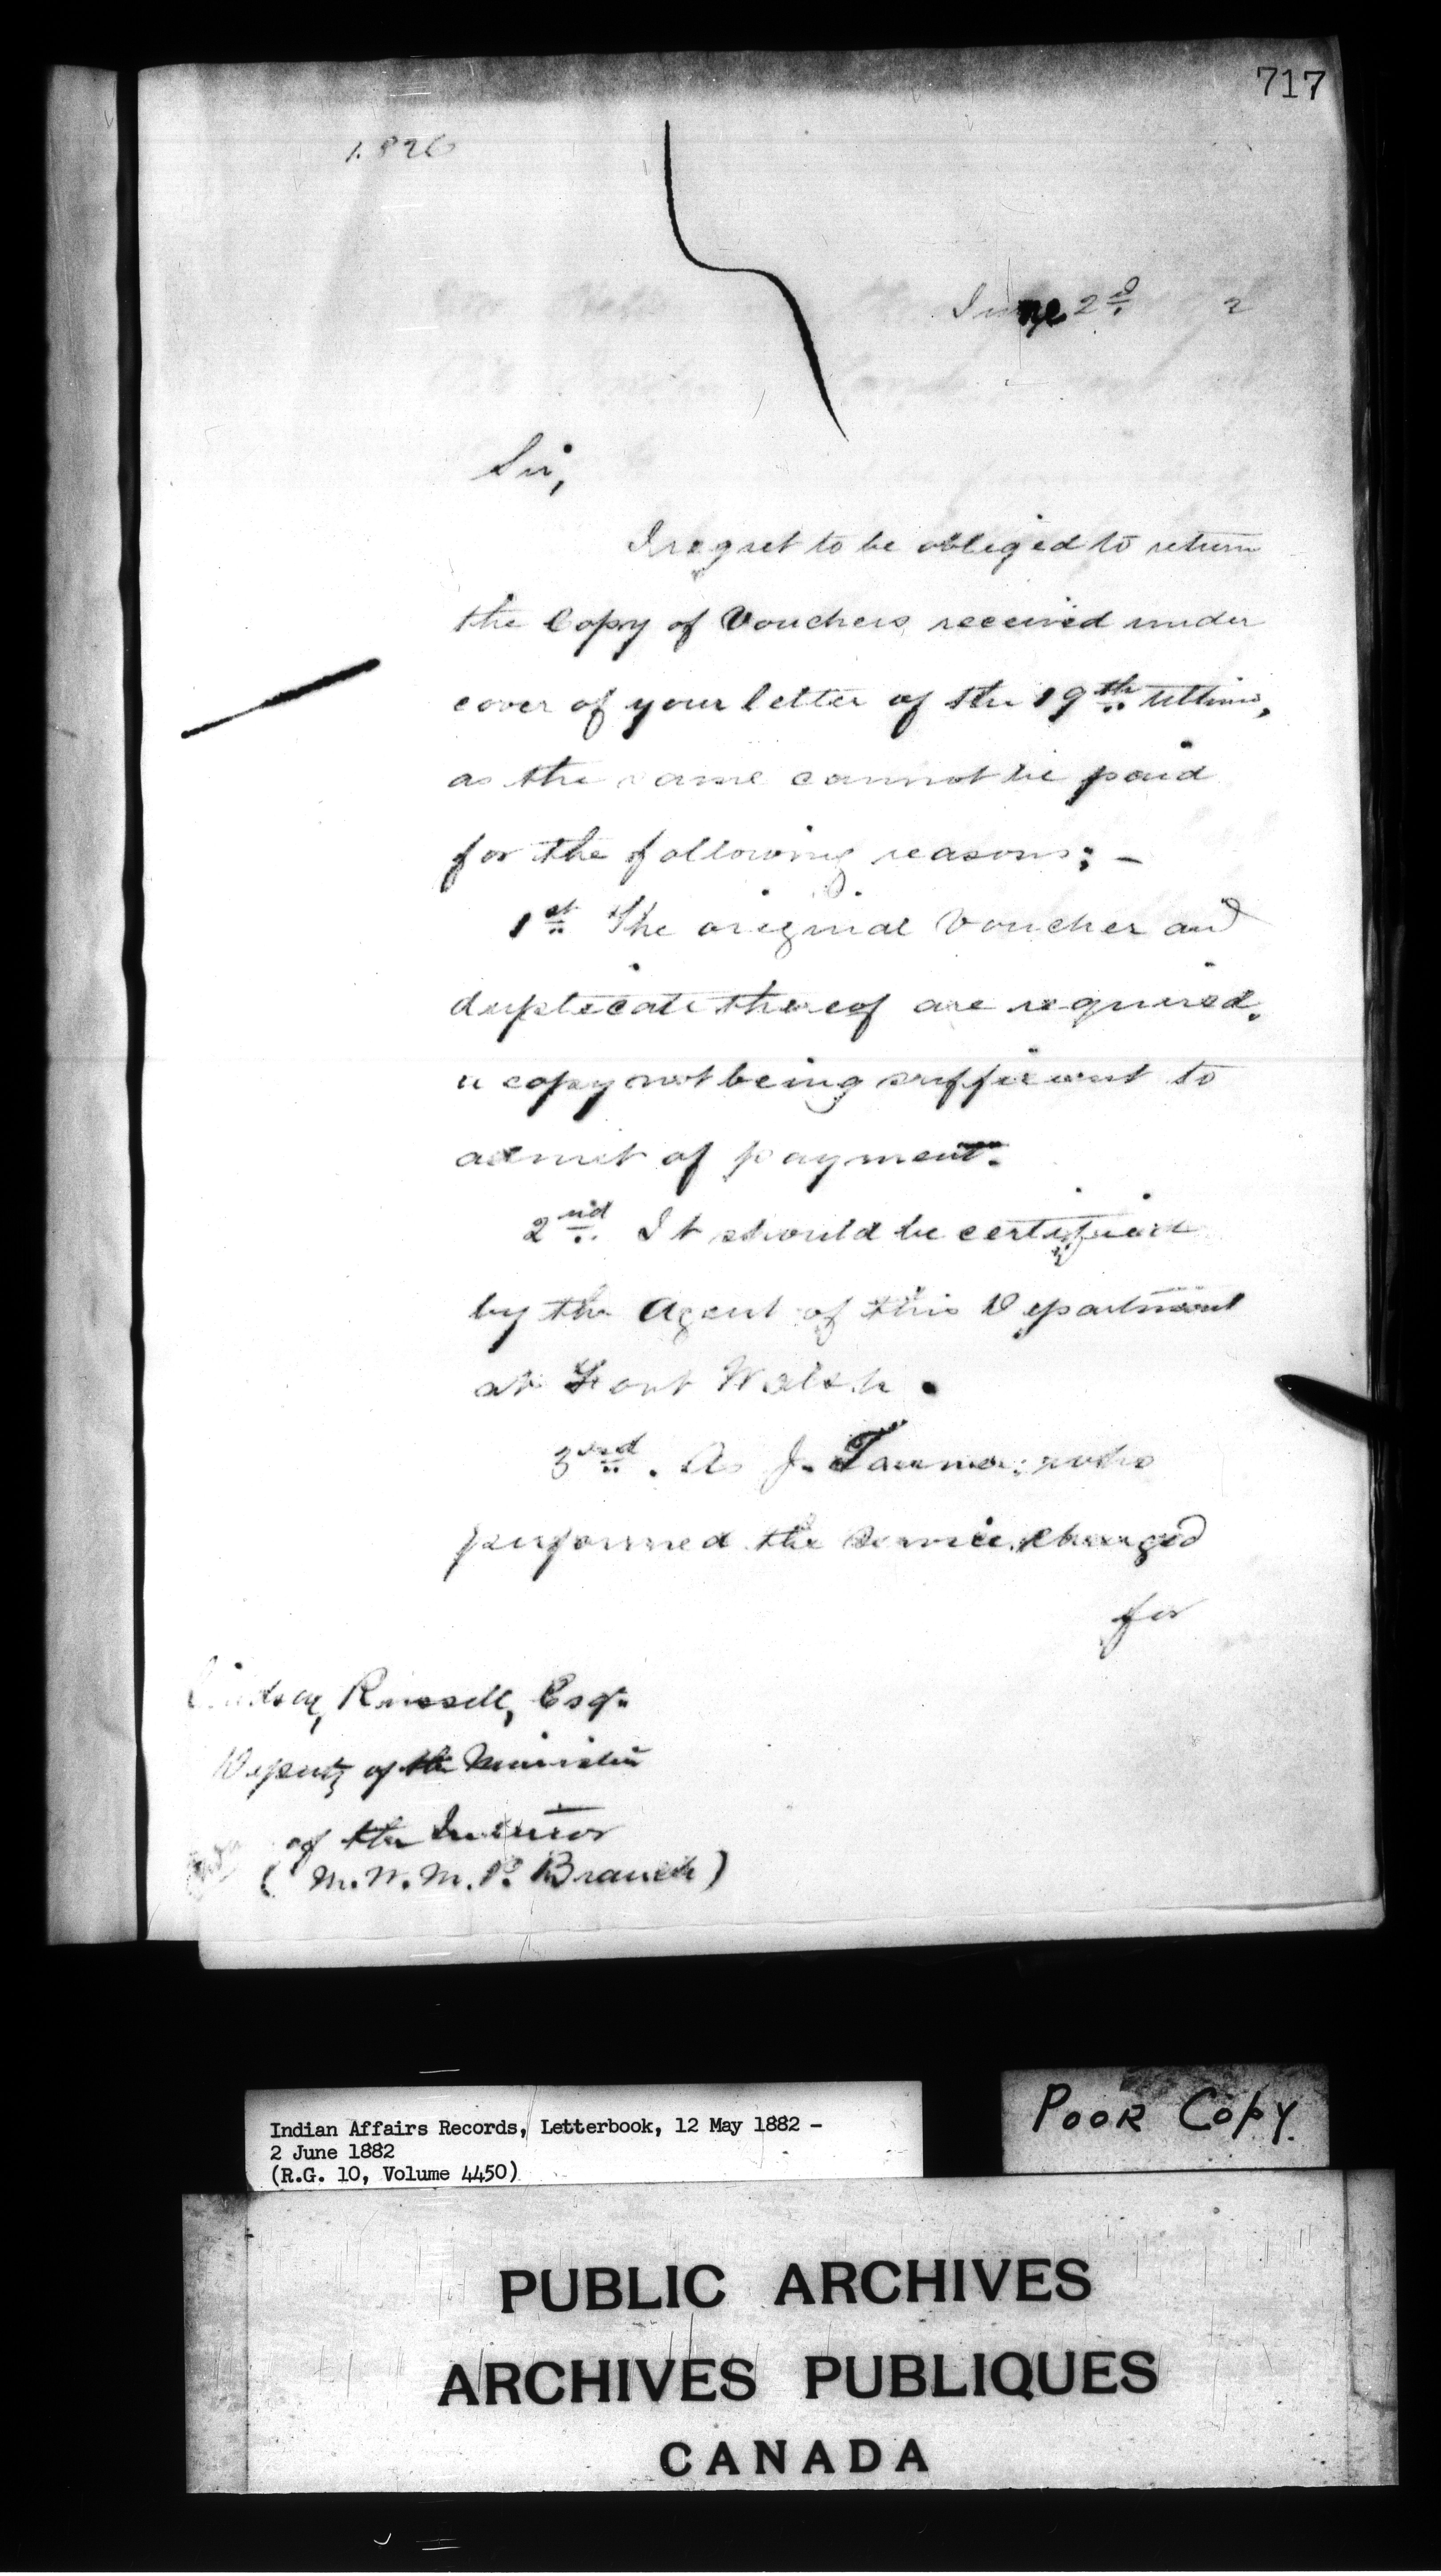 717
1.826
June 2d. 2
Sir,
I regret to be obliged to return
the Copy of Vouchers received under
cover of your letter of the 19th Ultimo,
as the same cannot be paid
for the following reasons; —
1st The original Voucher and
duplicate thereof are required,
a copy not being sufficient to
admit of payment.
2nd. It should be certified
by the Agent of this Department
at Fort Walsh.
3rd. As J. Tanner who
performed the Service charged
for
Lindsay, Russell, Esqr.
Deputy of the Minister
of the Interior
( M.W.M.P. Branch )
Indian Affairs Records, Letterbook, 12 May 1882 -
2 June 1882
(R.G. 10, Volume 4450)
POOR COPY.
PUBLIC ARCHIVES
ARCHIVES PUBLIQUES
CANADA